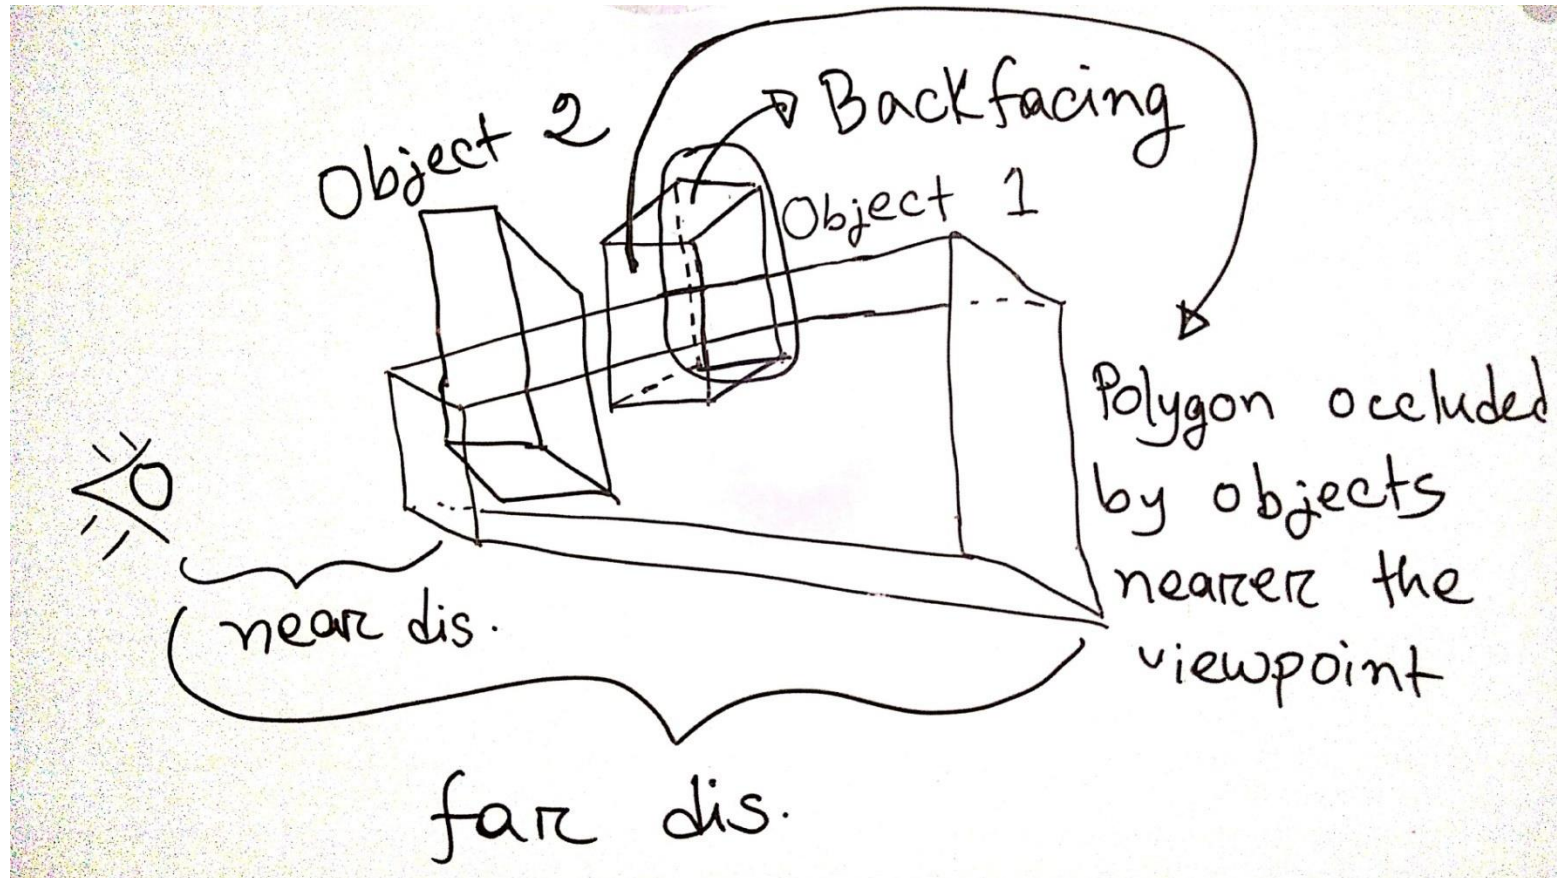 Object 2
Backfacing
Object 1
Polygon occluded
by objects
nearer the
viewpoint
near dis.
far dis.